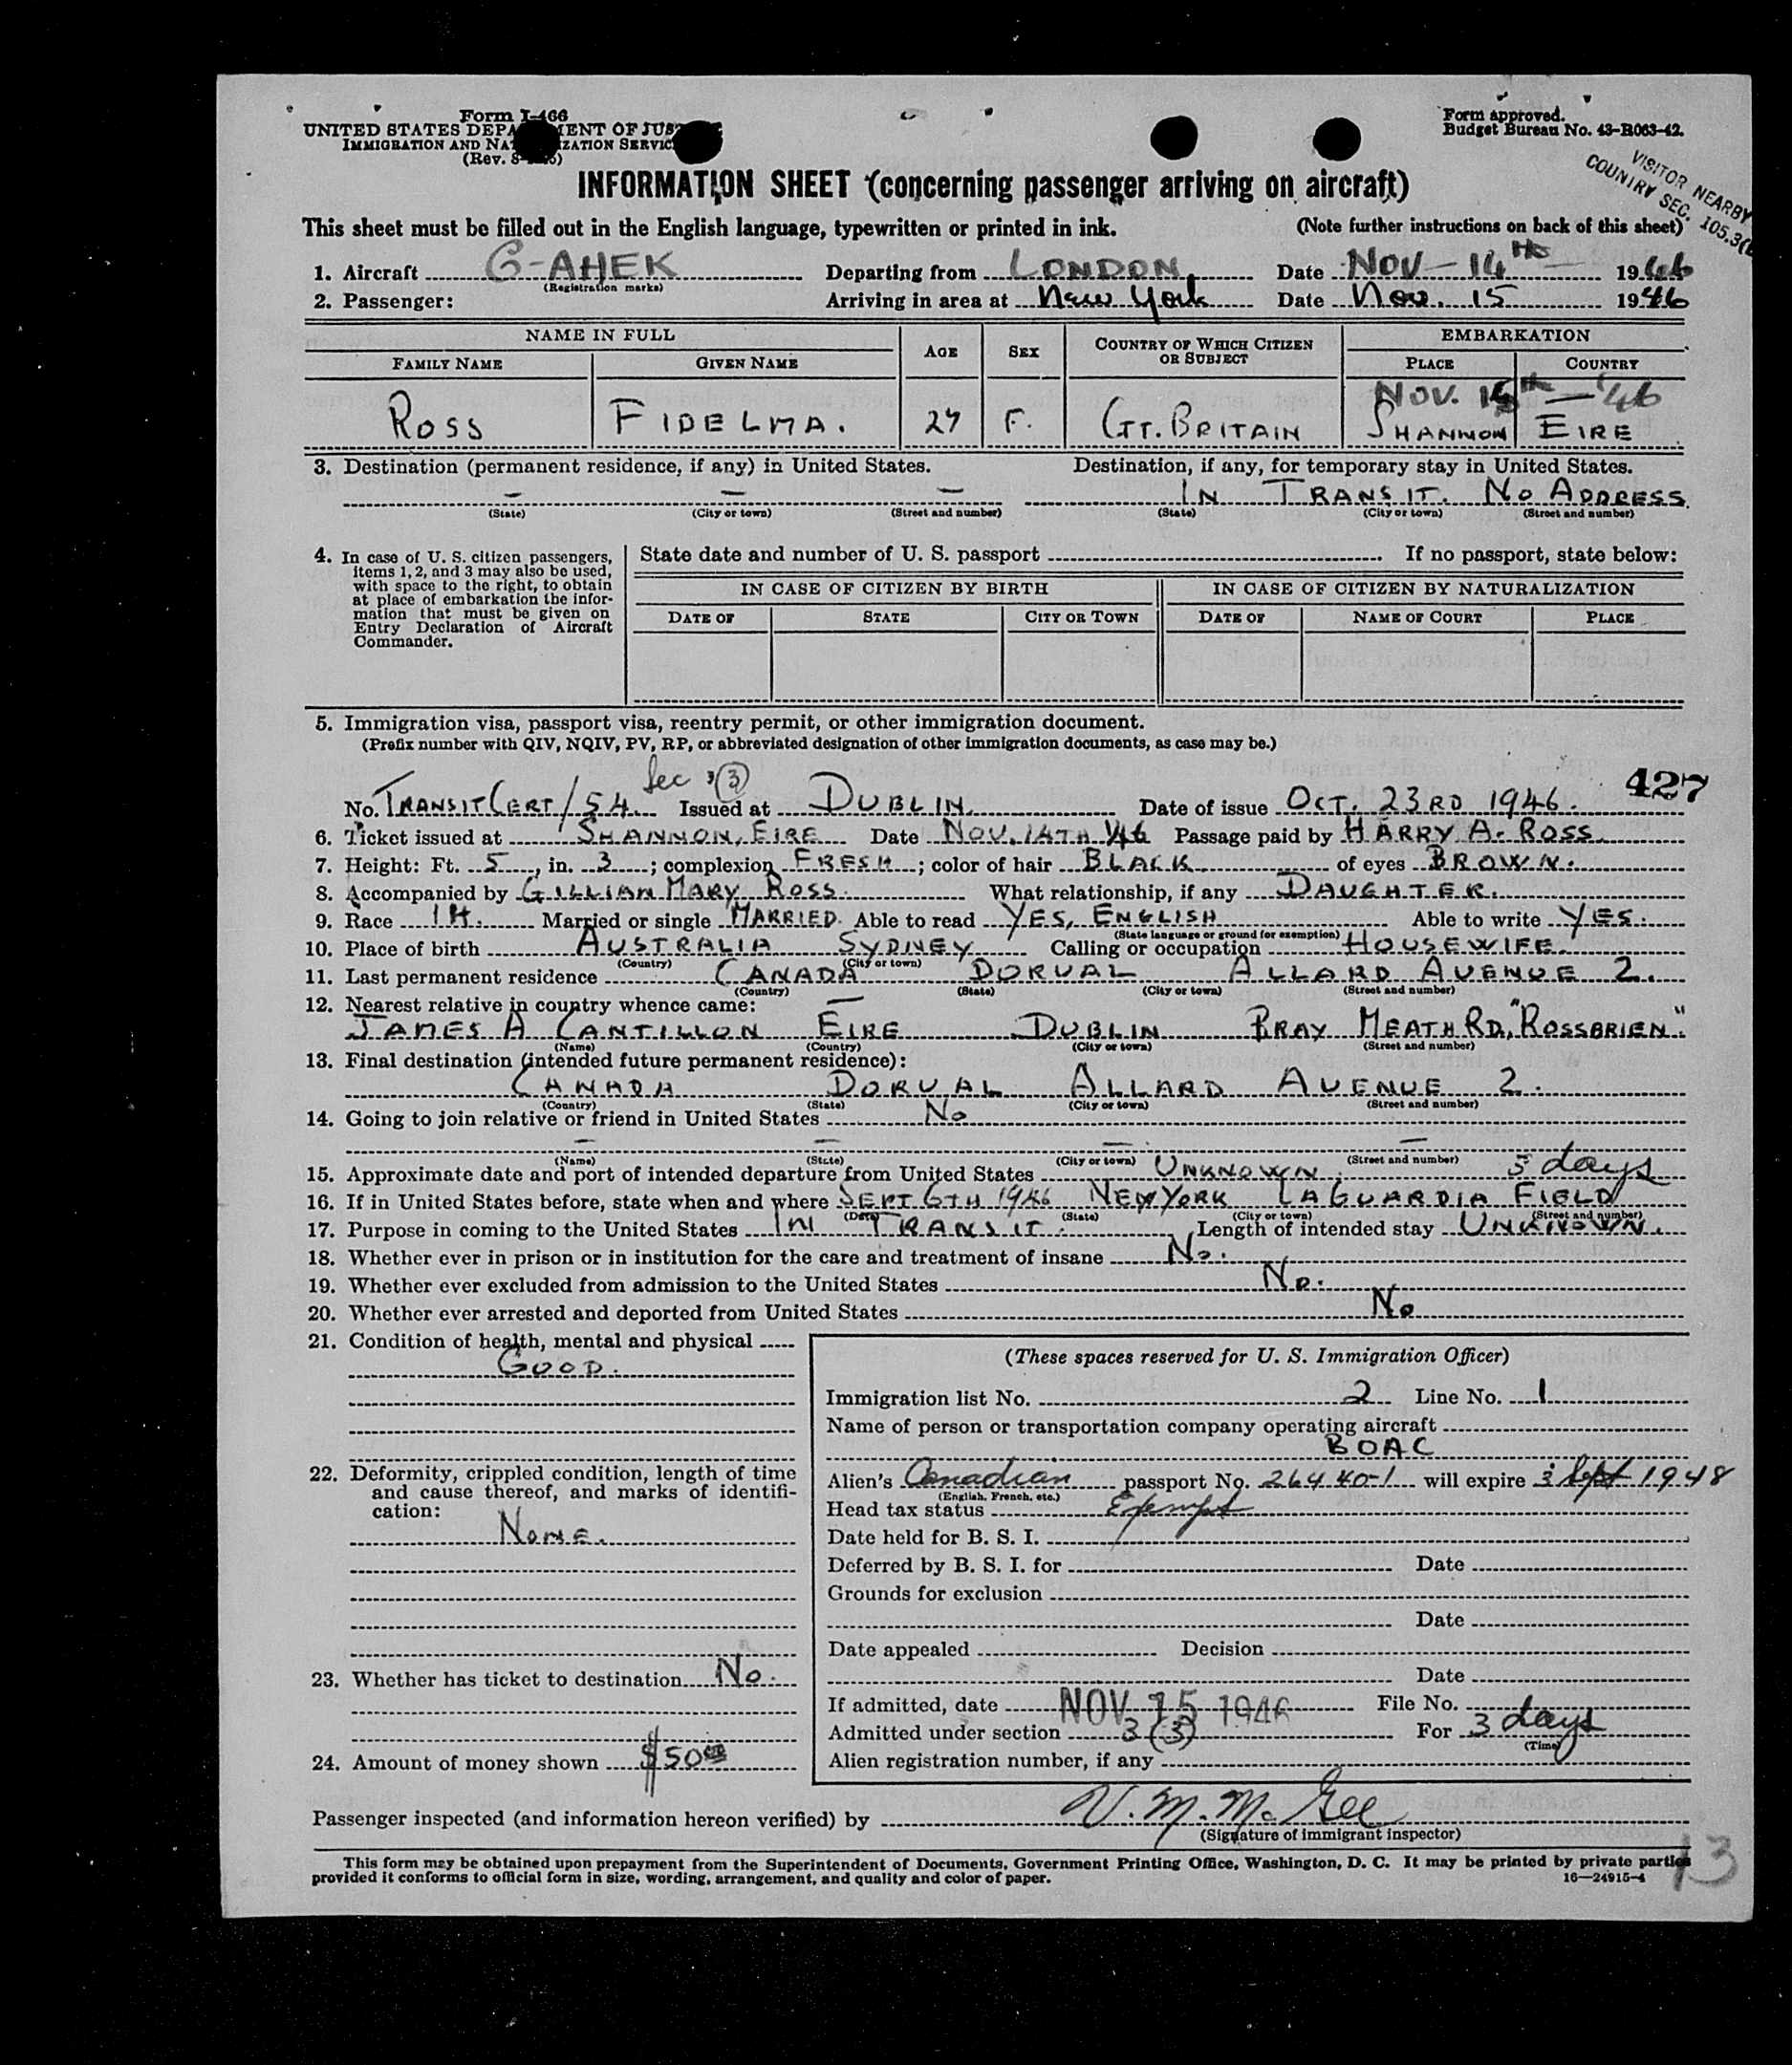 Form I-466
UNITED STATES DEPA MENT OF JUS
IMMIGRATION AND NA ZATION SERVIC
(Rev. 8- )
Form approved.
Budget Bureau No. 43-R063-42.
VISITOR NEARBY
COUNTRY SEC. 105.3(
INFORMATION SHEET (concerning passenger arriving on aircraft)
This sheet must be filled out in the English language, typewritten or printed in ink. (Note further instructions on back of this sheet)
1. Aircraft G-AHEK Departing from LONDON Date NOV-14th 1946
(Registration marks)
2. Passenger: Arriving in area at New York Date Nov. 15 1946
NAME IN FULL AGE SEX COUNTRY OF WHICH CITIZEN OR SUBJECT EMBARKATION
FAMILY NAME GIVEN NAME PLACE COUNTRY
NOV. 15th — '46
ROSS FIDELMA. 27 F. GT. BRITAIN SHANNON EIRE
3. Destination (permanent residence, if any) in United States. Destination, if any, for temporary stay in United States.
— — — IN TRANSIT. NO ADDRESS.
(State) (City or town) (Street and number) (State) (City or town) (Street and number)
4. In case of U. S. citizen passengers, items 1, 2, and 3 may also be used, with space to the right, to obtain at place of embarkation the information that must be given on Entry Declaration of Aircraft Commander.
State date and number of U. S. passport If no passport, state below:
IN CASE OF CITIZEN BY BIRTH IN CASE OF CITIZEN BY NATURALIZATION
DATE OF STATE CITY OR TOWN DATE OF NAME OF COURT PLACE
5. Immigration visa, passport visa, reentry permit, or other immigration document.
(Prefix number with QIV, NQIV, PV, RP, or abbreviated designation of other immigration documents, as case may be.)
Sec 3(3) 427
No. TRANSIT CERT/54. Issued at DUBLIN. Date of issue OCT. 23RD 1946.
6. Ticket issued at SHANNON, EIRE Date NOV. 14TH '46 Passage paid by HARRY A. ROSS.
7. Height: Ft. 5, in. 3; complexion FRESH; color of hair BLACK of eyes BROWN.
8. Accompanied by GILLIAN MARY ROSS. What relationship, if any DAUGHTER.
9. Race IH. Married or single MARRIED. Able to read YES, ENGLISH Able to write YES.
(State language or ground for exemption)
10. Place of birth AUSTRALIA SYDNEY Calling or occupation HOUSEWIFE.
(Country) (City or town)
11. Last permanent residence CANADA DORVAL ALLARD AVENUE 2.
(Country) (State) (City or town) (Street and number)
12. Nearest relative in country whence came:
JAMES A CANTILLON EIRE DUBLIN BRAY MEATH RD, "ROSSBRIEN".
(Name) (Country) (City or town) (Street and number)
13. Final destination (intended future permanent residence):
CANADA DORVAL ALLARD AVENUE 2.
(Country) (State) (City or town) (Street and number)
14. Going to join relative or friend in United States No
— — — —
(Name) (State) (City or town) (Street and number)
15. Approximate date and port of intended departure from United States UNKNOWN. 3 days
16. If in United States before, state when and where SEPT 6TH 1946 NEW YORK LAGUARDIA FIELD
(Date) (State) (City or town) (Street and number)
17. Purpose in coming to the United States IN TRANSIT. Length of intended stay UNKNOWN.
18. Whether ever in prison or in institution for the care and treatment of insane No.
19. Whether ever excluded from admission to the United States No.
20. Whether ever arrested and deported from United States No
21. Condition of health, mental and physical
GOOD.
22. Deformity, crippled condition, length of time and cause thereof, and marks of identification:
NONE.
23. Whether has ticket to destination No.
24. Amount of money shown $50
(These spaces reserved for U. S. Immigration Officer)
Immigration list No. 2 Line No. 1
Name of person or transportation company operating aircraft
BOAC
Alien's Canadian passport No. 26440-1 will expire 3 Sept 1948
(English, French, etc.)
Head tax status Exempt
Date held for B. S. I.
Deferred by B. S. I. for Date
Grounds for exclusion
Date
Date appealed Decision
Date
If admitted, date NOV 15 1946 File No.
Admitted under section 3(3) For 3 days
(Time)
Alien registration number, if any
Passenger inspected (and information hereon verified) by V. M. McGee
(Signature of immigrant inspector)
This form may be obtained upon prepayment from the Superintendent of Documents, Government Printing Office, Washington, D. C. It may be printed by private parties
provided it conforms to official form in size, wording, arrangement, and quality and color of paper. 16—24915-4
13